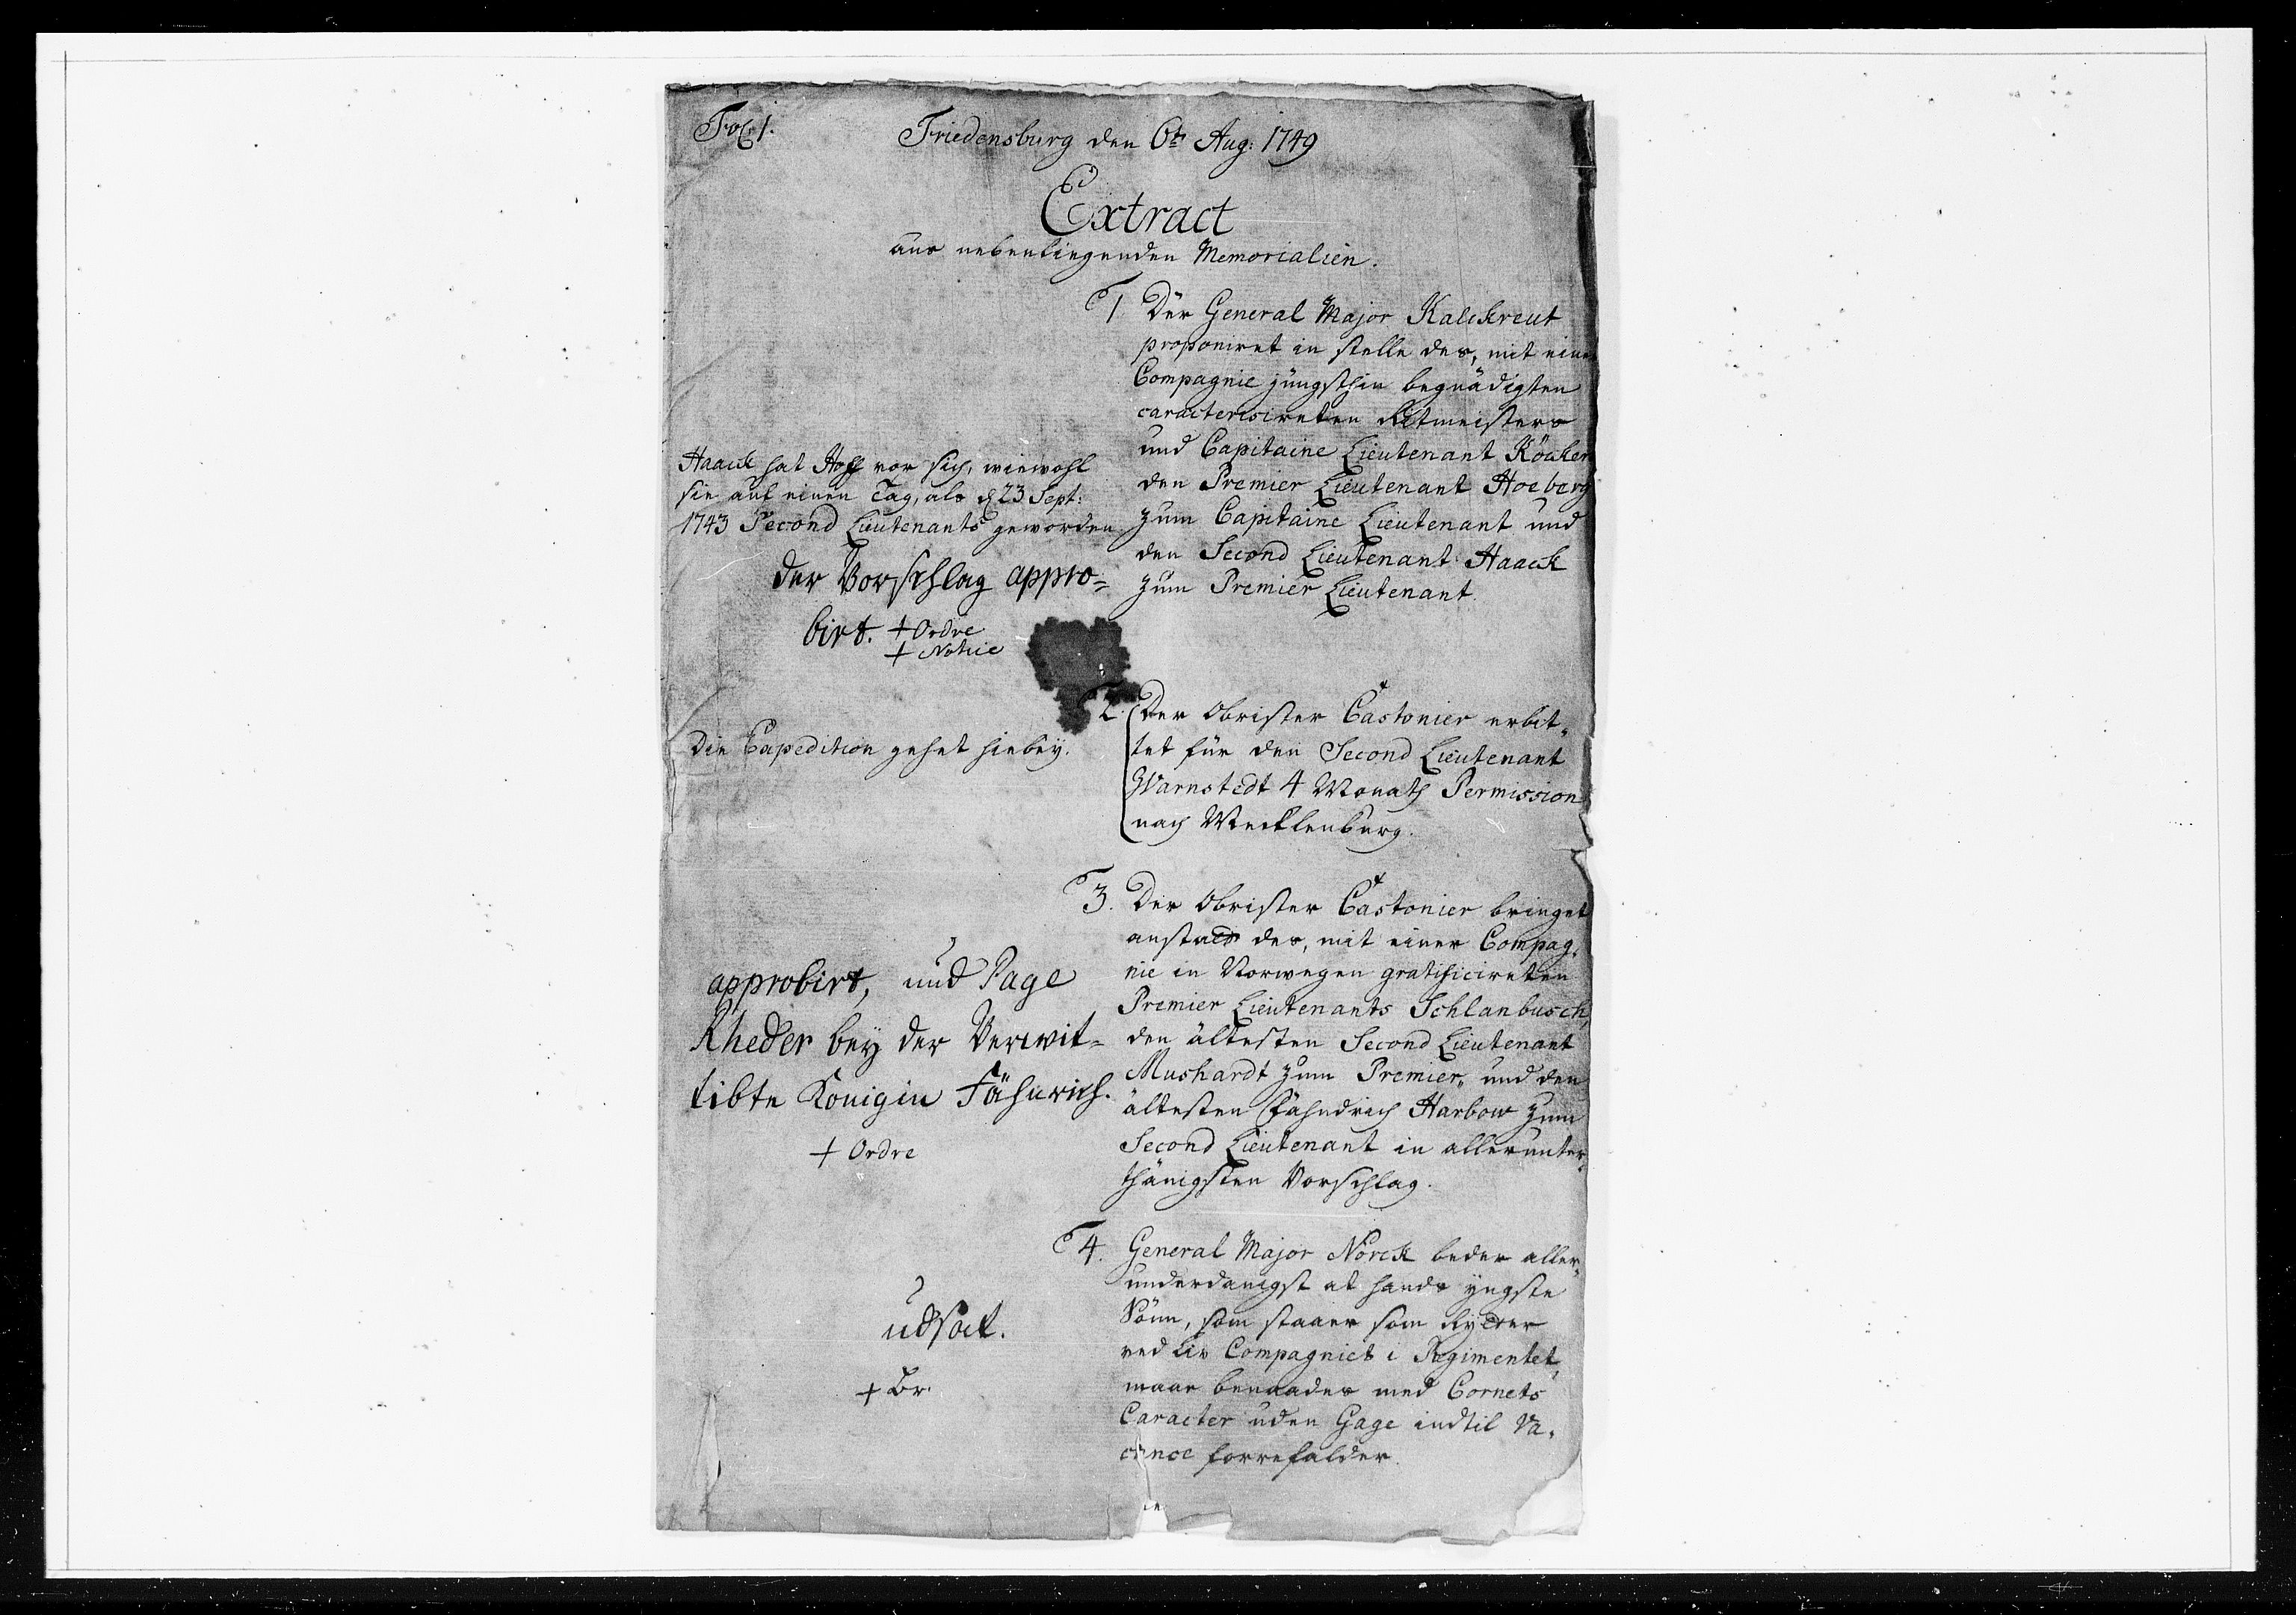 Fol. 1.
Friedensburg den 6t Aug: 1749
Extract
aus nebenliegenden Memorialien.
1. Der General Major Kalckreut
proponiret in stelle des, mit einer
Compagnie jüngsthin begnädigten
caracterisireten Ritmeisters
und Capitaine Lieutenant Köcker
den Premier Lieutenant Hoeberg
zum Capitaine Lieutenant und
den Second Lieutenant Haack
zum Premier Lieutenant.
Haack hat Hoff vor sich, wiewohl
sie auf einen Tag, als d 23 Sept:
1743 Second Lieutenants geworden
der Vorschlag appro=
birt. + Ordre
+ Notice
2. Der Obrister Castonier erbit„
tet für den Second Lieutenant
Warnstedt 4 Monath Permission
nach Mecklenburg.
die Expedition gehet hiebey.
3. Der Obrister Castonier bringet
anstadt des, mit einer Compag„
nie in Norwegen gratificireten
Premier Lieutenants Schlanbusch,
den ältesten Second Lieutenant
Mushardt zum Premier„ und den
ältesten Fähndrich Harbow zum
Second Lieutenant in allerunter„
thänigsten Vorschlag.
approbirt, und Page
Rheder bey der Verwit=
tibte Konigin Fähnrich.
+ Ordre
4. General Major Nörck beder aller„
underdanigst at hands yngste
Sönn, som staaer som Rytter
ved Liv Compagniet i Regimentet,
maae benaades med Cornets
Caracter uden Gage indtil Va„
cance forrefalder.
udsat.
+ Br.